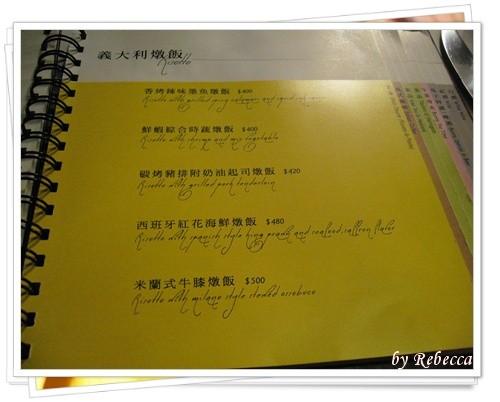 義大利燉飯
Risotto
香烤辣味墨魚燉飯 $400
Risotto with grilled spicy calamari and squid ink
鮮蝦綜合時蔬燉飯 $400
Risotto with shrimp and mix vegetable
碳烤豬排附奶油起司燉飯 $420
Risotto with grilled pork tenderloin
西班牙紅花海鮮燉飯 $480
Risotto with spanish style king prawn and seafood, saffron flavor
米蘭式牛膝燉飯 $500
Risotto with milano style stewed ossobuco
by Rebecca